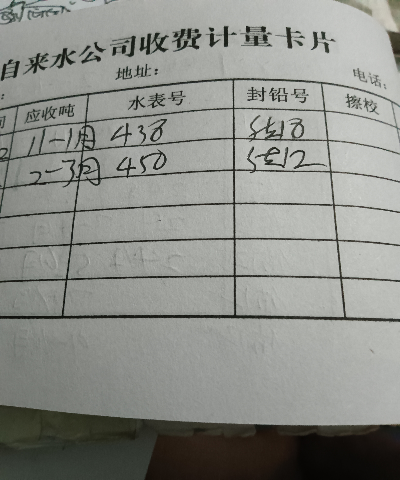 自来水公司收费计量卡片
地址： 电话：
应收吨 水表号 封铅号 擦校
11-1月 438
2-3月 450